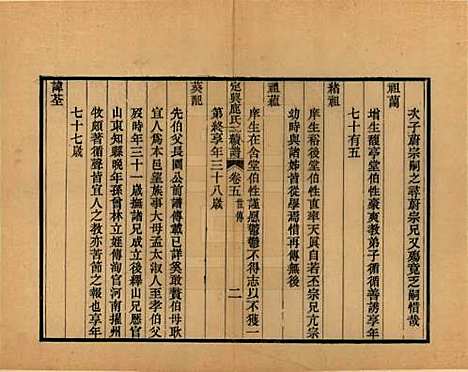 次子蔚宗嗣之尋蔚宗兄又殤竟乏嗣惜哉
祖蘭
增生馥亭堂伯性豪爽教弟子循循善誘享年
七十有五
緒祖
庠生裕後堂伯性直率天眞自若丕宗兄亢宗
幼時與諸姪皆從學焉惜再傳無後
祖蘊
庠生在含堂伯性謹愿鬱鬱不得志以不獲一
第終享年三十八歲
定興鹿氏二續譜 卷五 世傳 二
英記
先伯父長園公前譜傳載已詳矣敢贅伯母耿
宜人爲本邑望族事大母孟太淑人至孝伯父
歿時三十一歲撫諸兄成立後繹山兄歷官
山東知縣晚年孫曾林立姪傳洵官河南擢州
牧頗著循聲皆宜人之教亦苦節之報也享年
七十七歲
諱荃